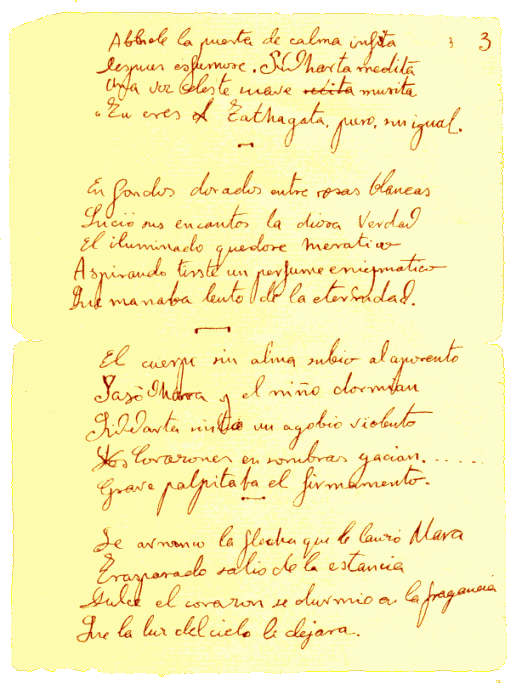 3 3
Abbiole la puerta de calma infita
despues esfumose. Sidharta medita
Una voz celeste suave recita musita
"Tu eres el Tathagata, puro, sin igual.
En fondos dorados entre rosas blancas
Lució sus encantos la diosa Verdad
El iluminado quedose meratico
Aspirando triste un perfume enigmatico
Que manaba lento de la eternidad.
El cuerpo sin alma subio al aposento
Yasodhara y el niño dormian
Siddarta sintio un agobio violento
Los corazones en sombras yacian......
Grave palpitaba el firmamento.
Se arranco la flecha que le lanzo Mara
Traspasado salio de la estancia
Dulce el corazon se durmio a la fragancia
Que la luz del cielo le dejara.